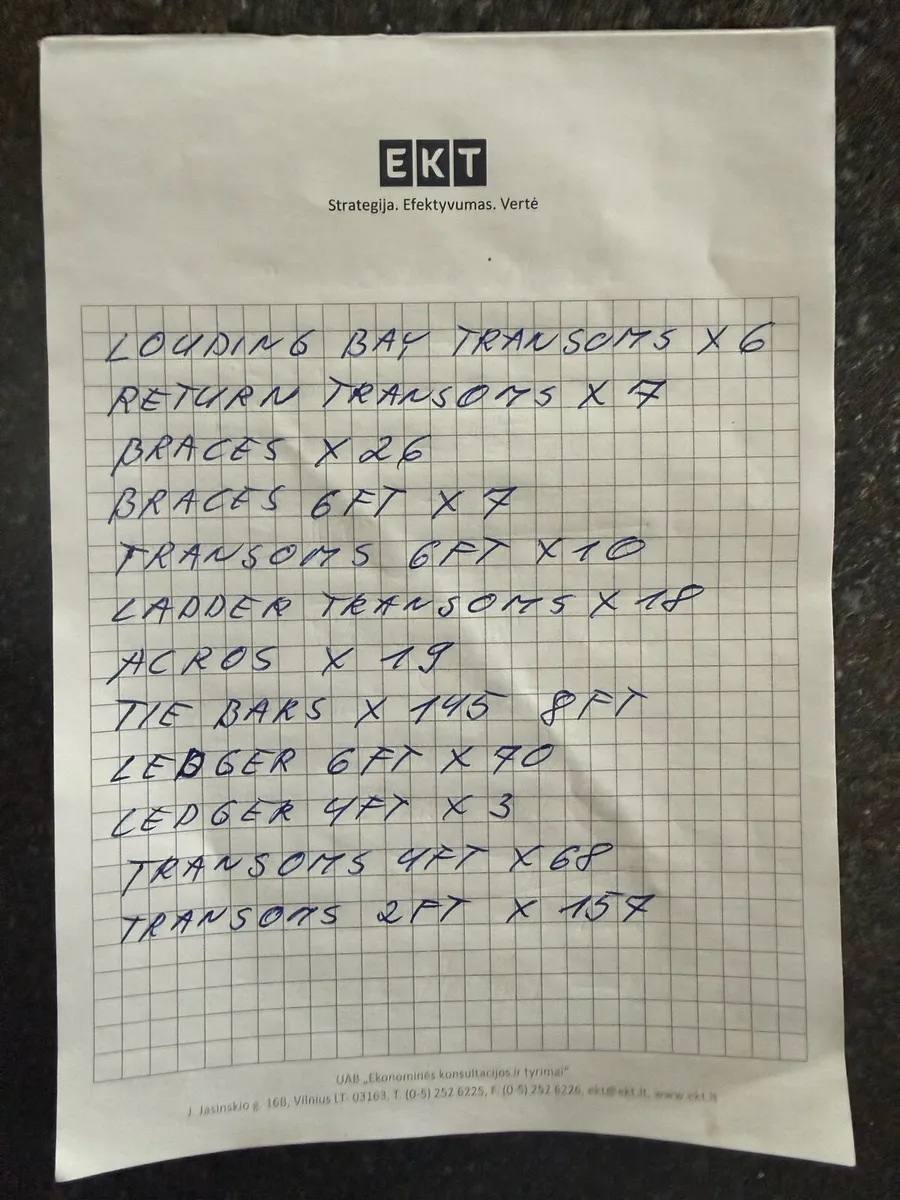 EKT
Strategija. Efektyvumas. Vertė
LOUDING BAY TRANSOMS X 6
RETURN TRANSOMS X 7
BRACES X 26
BRACES 6FT X 7
TRANSOMS 6FT X 10
LADDER TRANSOMS X 18
ACROS X 19
TIE BARS X 145 8FT
LEDGER 6FT X 70
LEDGER 4FT X 3
TRANSOMS 4FT X 68
TRANSOMS 2FT X 157
UAB „Ekonominės konsultacijos ir tyrimai“
J. Jasinskio g. 16B, Vilnius LT- 03163, T. (0-5) 252 6225, F. (0-5) 252 6226, ekt@ekt.lt, www.ekt.lt